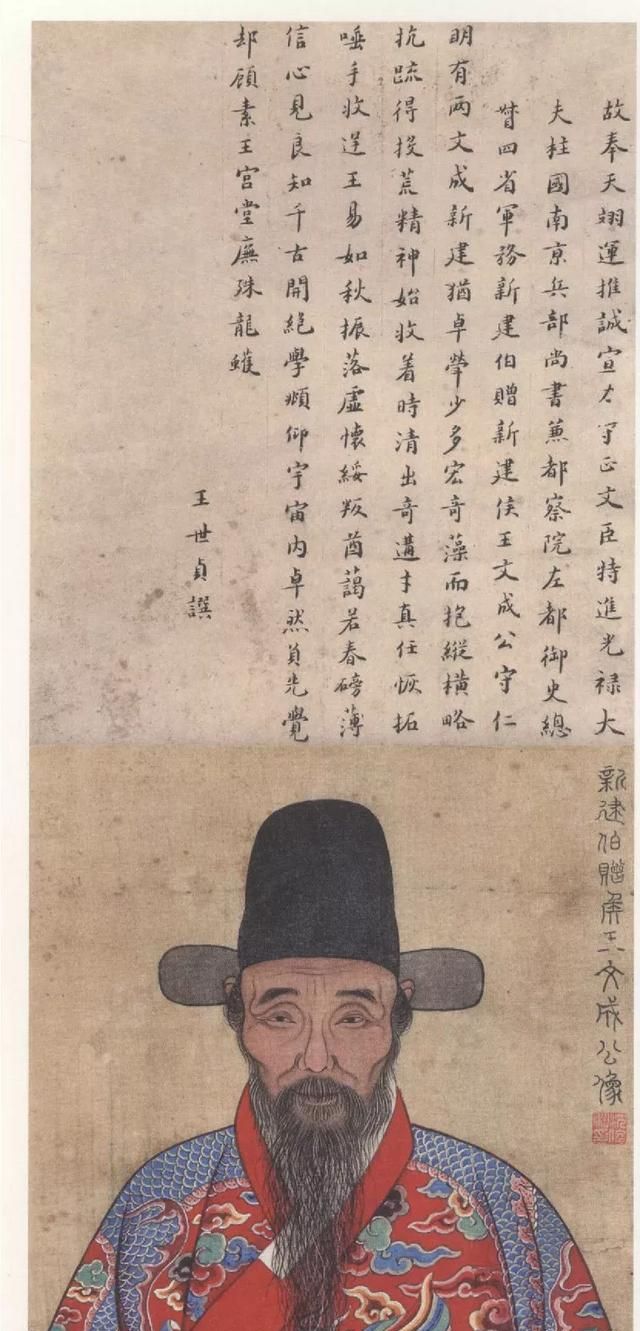 故奉天翊運推誠宣力守正文臣特進光祿大
夫柱國南京兵部尚書兼都察院左都御史總
督四省軍務新建伯贈新建侯王文成公守仁
明有两文成新建猶卓犖少多宏奇藻而抱縱橫略
抗疏得投荒精神始收着時清出奇遘才真任恢拓
唾手收逞王易如秋振落虛懷綏叛酋藹若春磅薄
信心見良知千古開絕學頫仰宇宙内卓然負先覺
却顧素王宮堂廡殊龍蠖
王世貞譔
新建伯贈矦王文成公像